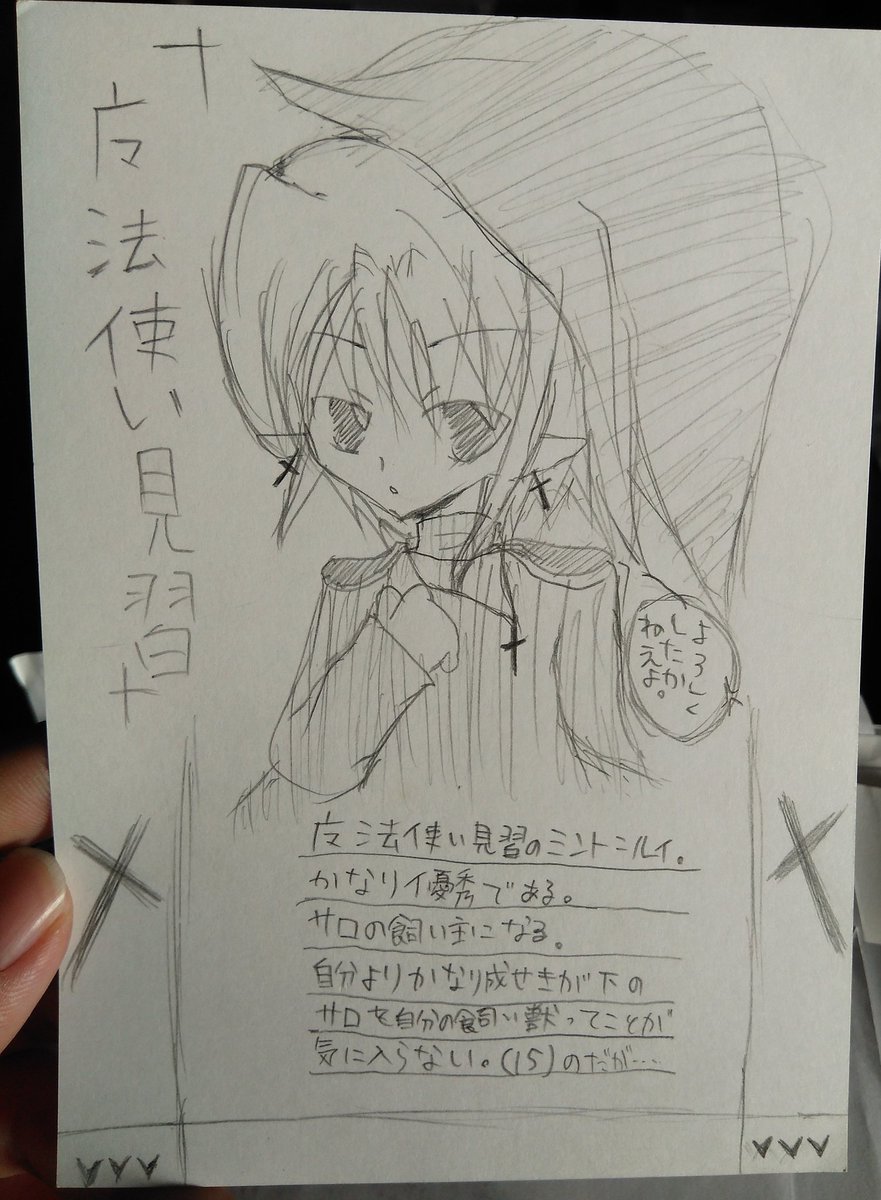 †魔法使い見習†
よろしく
したか
ねえよ。
魔法使い見習のミントミルイ。
かなり優秀である。
サロの飼い主になる。
自分よりかなり成せきが下の
サロを自分の飼い獣ってことが
気に入らない。(15)のだが……